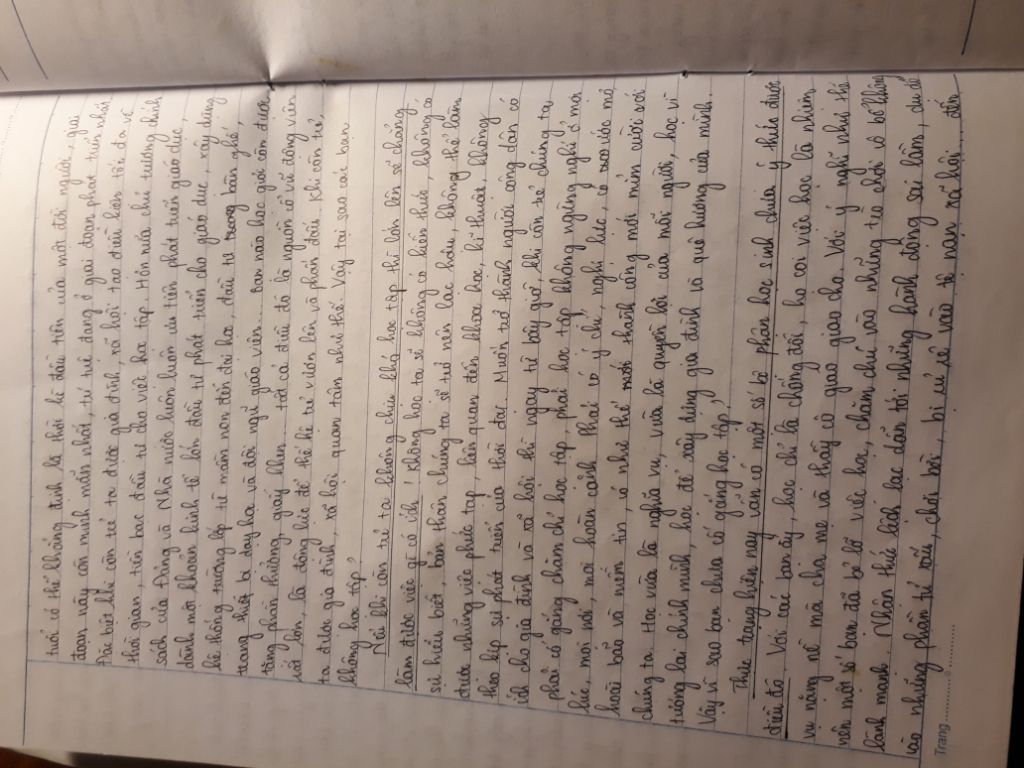 tuổi có thể khẳng định là thời kì đầu tiên của một đời người, giai
đoạn này còn minh mẫn nhất, tư duy đang ở giai đoạn phát triển nhất.
Đặc biệt khi còn trẻ ta được gia đình, xã hội tạo điều kiện tối đa về
thời gian, tiền bạc đầu tư cho việc học tập. Hơn nữa chủ trương chính
sách của Đảng và Nhà nước luôn luôn ưu tiên phát triển giáo dục,
dành một khoản kinh tế lớn đầu tư phát triển cho giáo dục, xây dựng
hệ thống trường lớp từ mầm non đến đại học, đầu tư trang bàn ghế,
trang thiết bị dạy học và đội ngũ giáo viên... bạn nào học giỏi còn được
tặng phần thưởng, giấy khen... tất cả điều đó là nguồn cổ vũ động viên
rất lớn, là động lực để thế hệ trẻ vươn lên và phấn đấu. Khi còn trẻ,
ta được gia đình, xã hội quan tâm như thế. Vậy tại sao các bạn
không học tập?
Nếu khi còn trẻ ta không chịu khó học tập thì lớn lên sẽ chẳng
làm được việc gì có ích! Không học ta sẽ không có kiến thức, không có
sự hiểu biết, bản thân chúng ta sẽ trở nên lạc hậu, không thể làm
được những việc phức tạp, liên quan đến khoa học, kĩ thuật, không
theo kịp sự phát triển của thời đại. Muốn trở thành người công dân có
ích cho gia đình và xã hội thì ngay từ bây giờ, khi còn trẻ chúng ta
phải cố gắng chăm chỉ học tập, phải học tập không ngừng nghỉ ở mọi
lúc, mọi nơi, mọi hoàn cảnh. Phải có ý chí, nghị lực, có ước mơ
hoài bão và niềm tin, có như thế mới thành công mới mỉm cười với
chúng ta. Học vừa là nghĩa vụ, vừa là quyền lợi của mỗi người, học vì
tương lai chính mình, học để xây dựng gia đình và quê hương của mình.
Vậy vì sao bạn chưa cố gắng học tập?
Thực trạng hiện nay vẫn có một số bộ phận học sinh chưa ý thức được
điều đó. Với các bạn ấy, học chỉ là chống đối, họ coi việc học là nhiệm
vụ nặng nề mà cha mẹ và thầy cô giao cho. Với ý nghĩ như thế
nên một số bạn đã bỏ bê việc học, chăm chú vào những trò chơi vô bổ không
lành mạnh. Nhận thức lệch lạc dẫn tới những hành động sai lầm, dễ
vào những phần tử xấu, chơi bời, bị rủ rê vào tệ nạn xã hội... đến
Trang